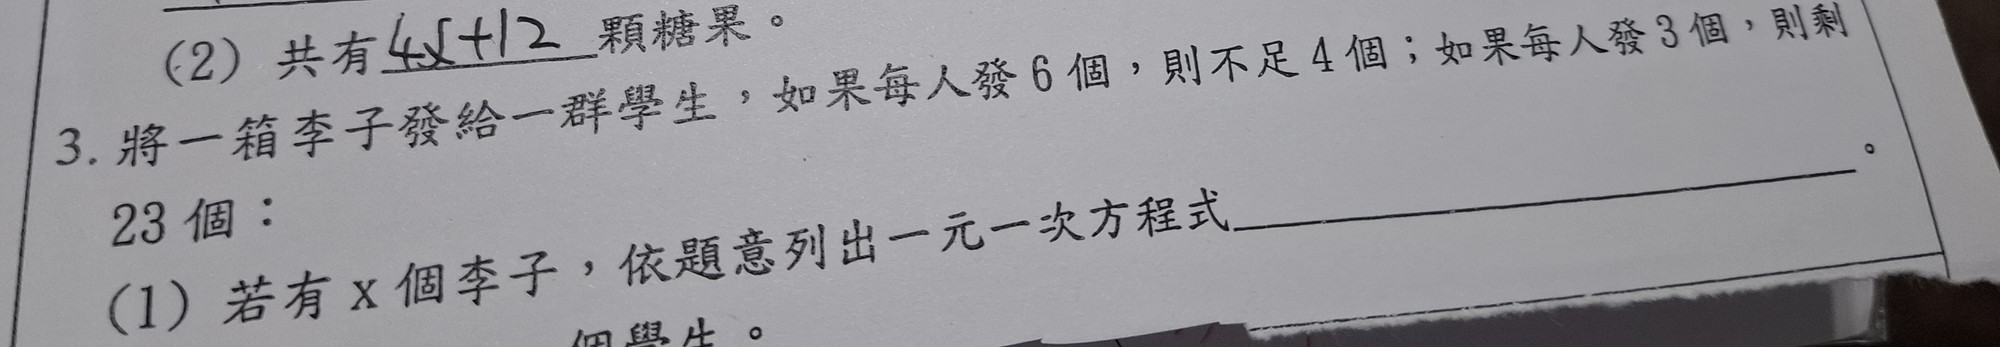 (2) 共有4x+12顆糖果。
3. 將一箱李子發給一群學生，如果每人發6個，則不足4個；如果每人發3個，則剩
23個：
(1) 若有x個李子，依題意列出一元一次方程式＿＿＿＿＿＿＿＿。
個學生。